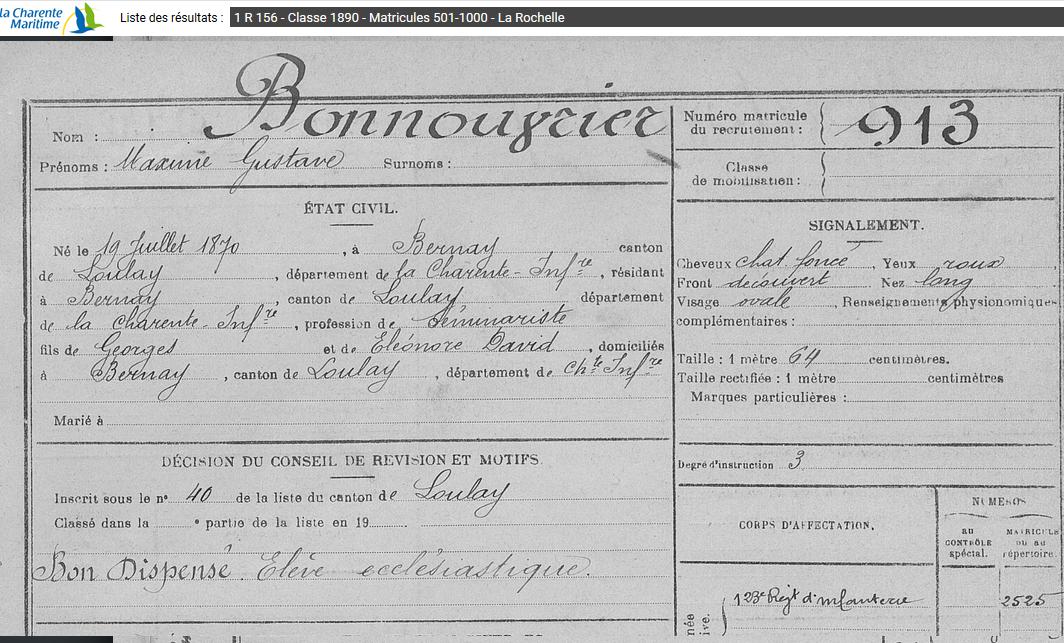 la Charente
Maritime
Liste des résultats : 1 R 156 - Classe 1890 - Matricules 501-1000 - La Rochelle
Nom : Bonnouvrier
Prénoms : Maxime Gustave Surnoms :
Numéro matricule
du recrutement : 913
Classe
de mobilisation :
ÉTAT CIVIL.
Né le 19 Juillet 1870, à Bernay canton
de Loulay, département de la Charente-Infre, résidant
à Bernay, canton de Loulay, département
de la Charente-Infre, profession de Séminariste
fils de Georges et de Eléonore David, domiciliés
à Bernay, canton de Loulay, département de Chte Infre
Marié à
SIGNALEMENT.
Cheveux chat. foncé, Yeux roux
Front découvert Nez long
Visage ovale, Renseignements physionomique
complémentaires :
Taille : 1 mètre 64 centimètres.
Taille rectifiée : 1 mètre centimètres
Marques particulières :
Degré d'instruction 3
DÉCISION DU CONSEIL DE REVISION ET MOTIFS.
Inscrit sous le n° 40 de la liste du canton de Loulay
Classé dans la e partie de la liste en 19
Bon Dispensé. Elève ecclésiastique.
CORPS D'AFFECTATION.
NUMÉROS
AU
CONTRÔLE
spécial.
MATRICULE
ou au
répertoire.
123e Régt d'infanterie 2525